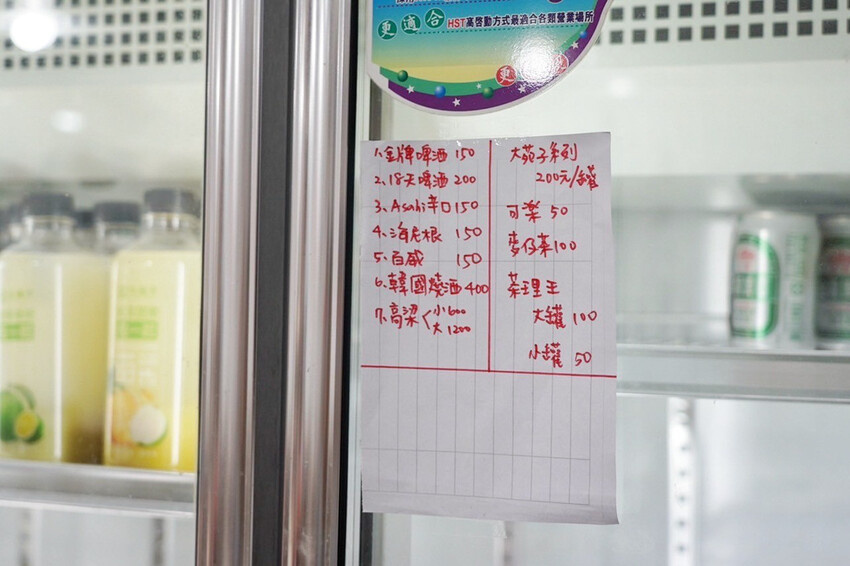 更適合 HST高啓動方式最適合各類營業場所
更
1、金牌啤酒 150
2、18天啤酒 200
3、Asahi辛口 150
4、海尼根 150
5、百威 150
6、韓國燒酒 400
7、高梁〈小600
大1200
大苑子系列
200元/罐
可樂 50
麥仔茶 100
茶理王
大罐 100
小罐 50